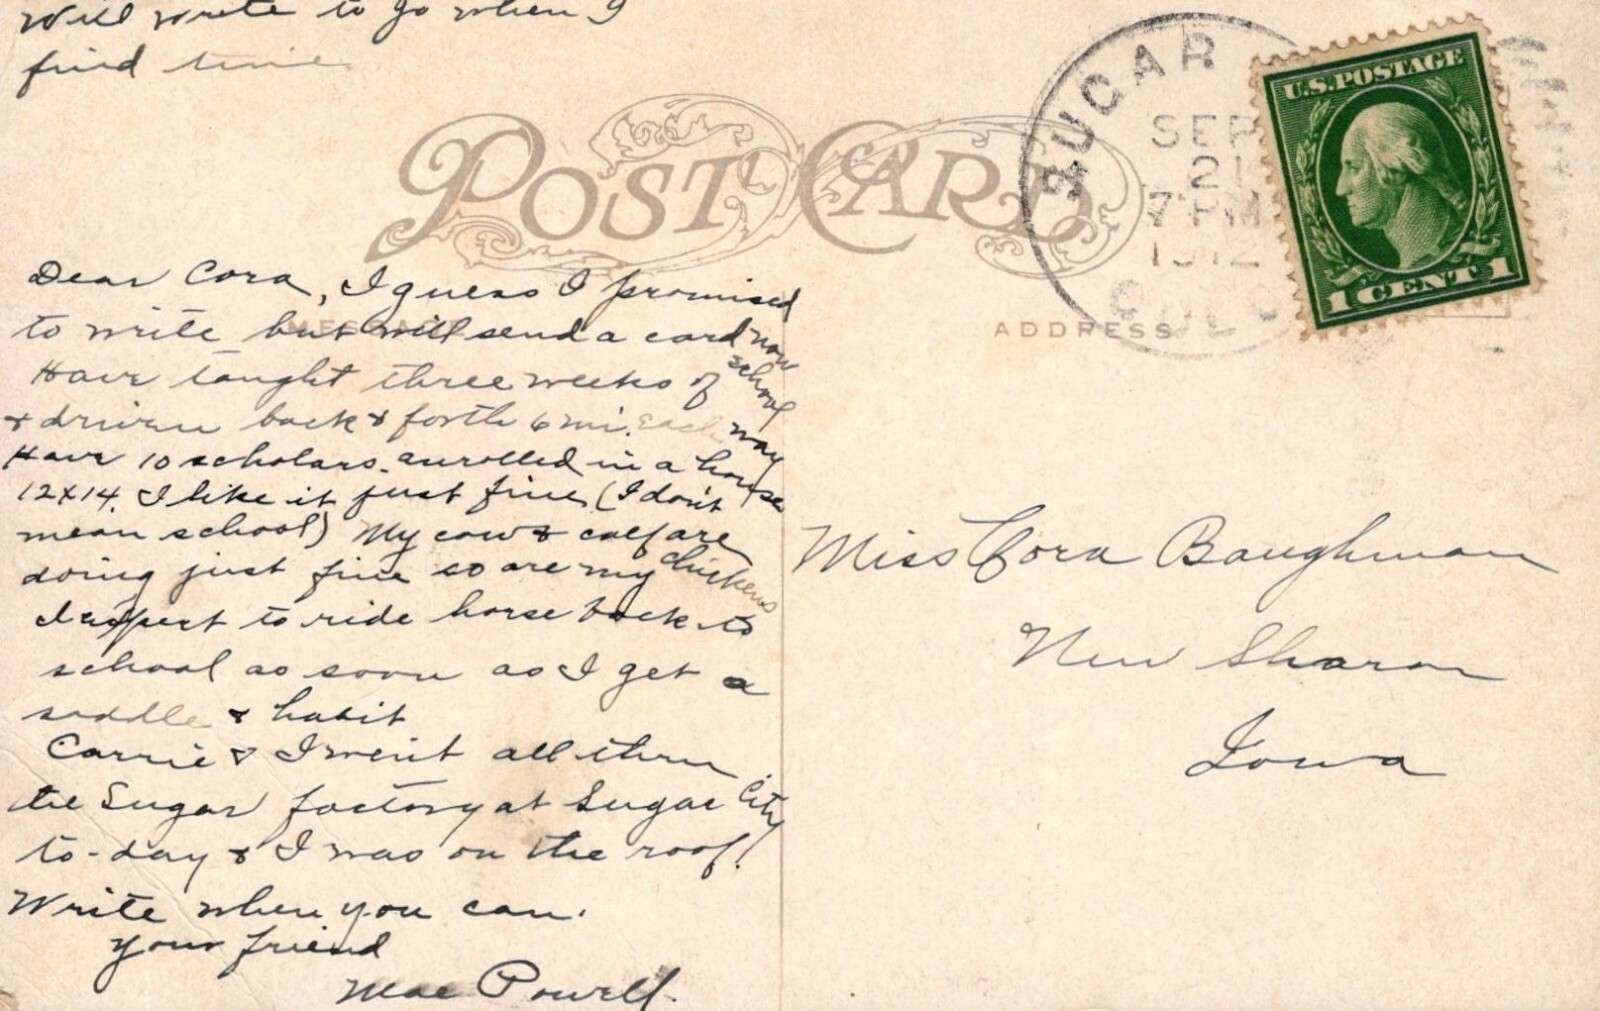 Will write to Jo when I
find time
POST CARD
SUGAR
SEP
21
7 PM
1912
COLO
U.S. POSTAGE
1 CENT 1
MESSAGE
ADDRESS
Dear Cora, I guess I promised
to write but will send a card now
Have taught three weeks of school
& driven back & forth 6 mi. each way
Have 10 scholars enrolled in a house
12x14. I like it just fine (I don't
mean school) My cow & calf are
doing just fine so are my chickens
I expect to ride horse back to
school as soon as I get a
saddle & habit
Carrie & I went all thru
the Sugar factory at Sugar City
to-day & I was on the roof!
Write when you can.
Your friend
Mae Powell.
Miss Cora Baughman
New Sharon
Iowa